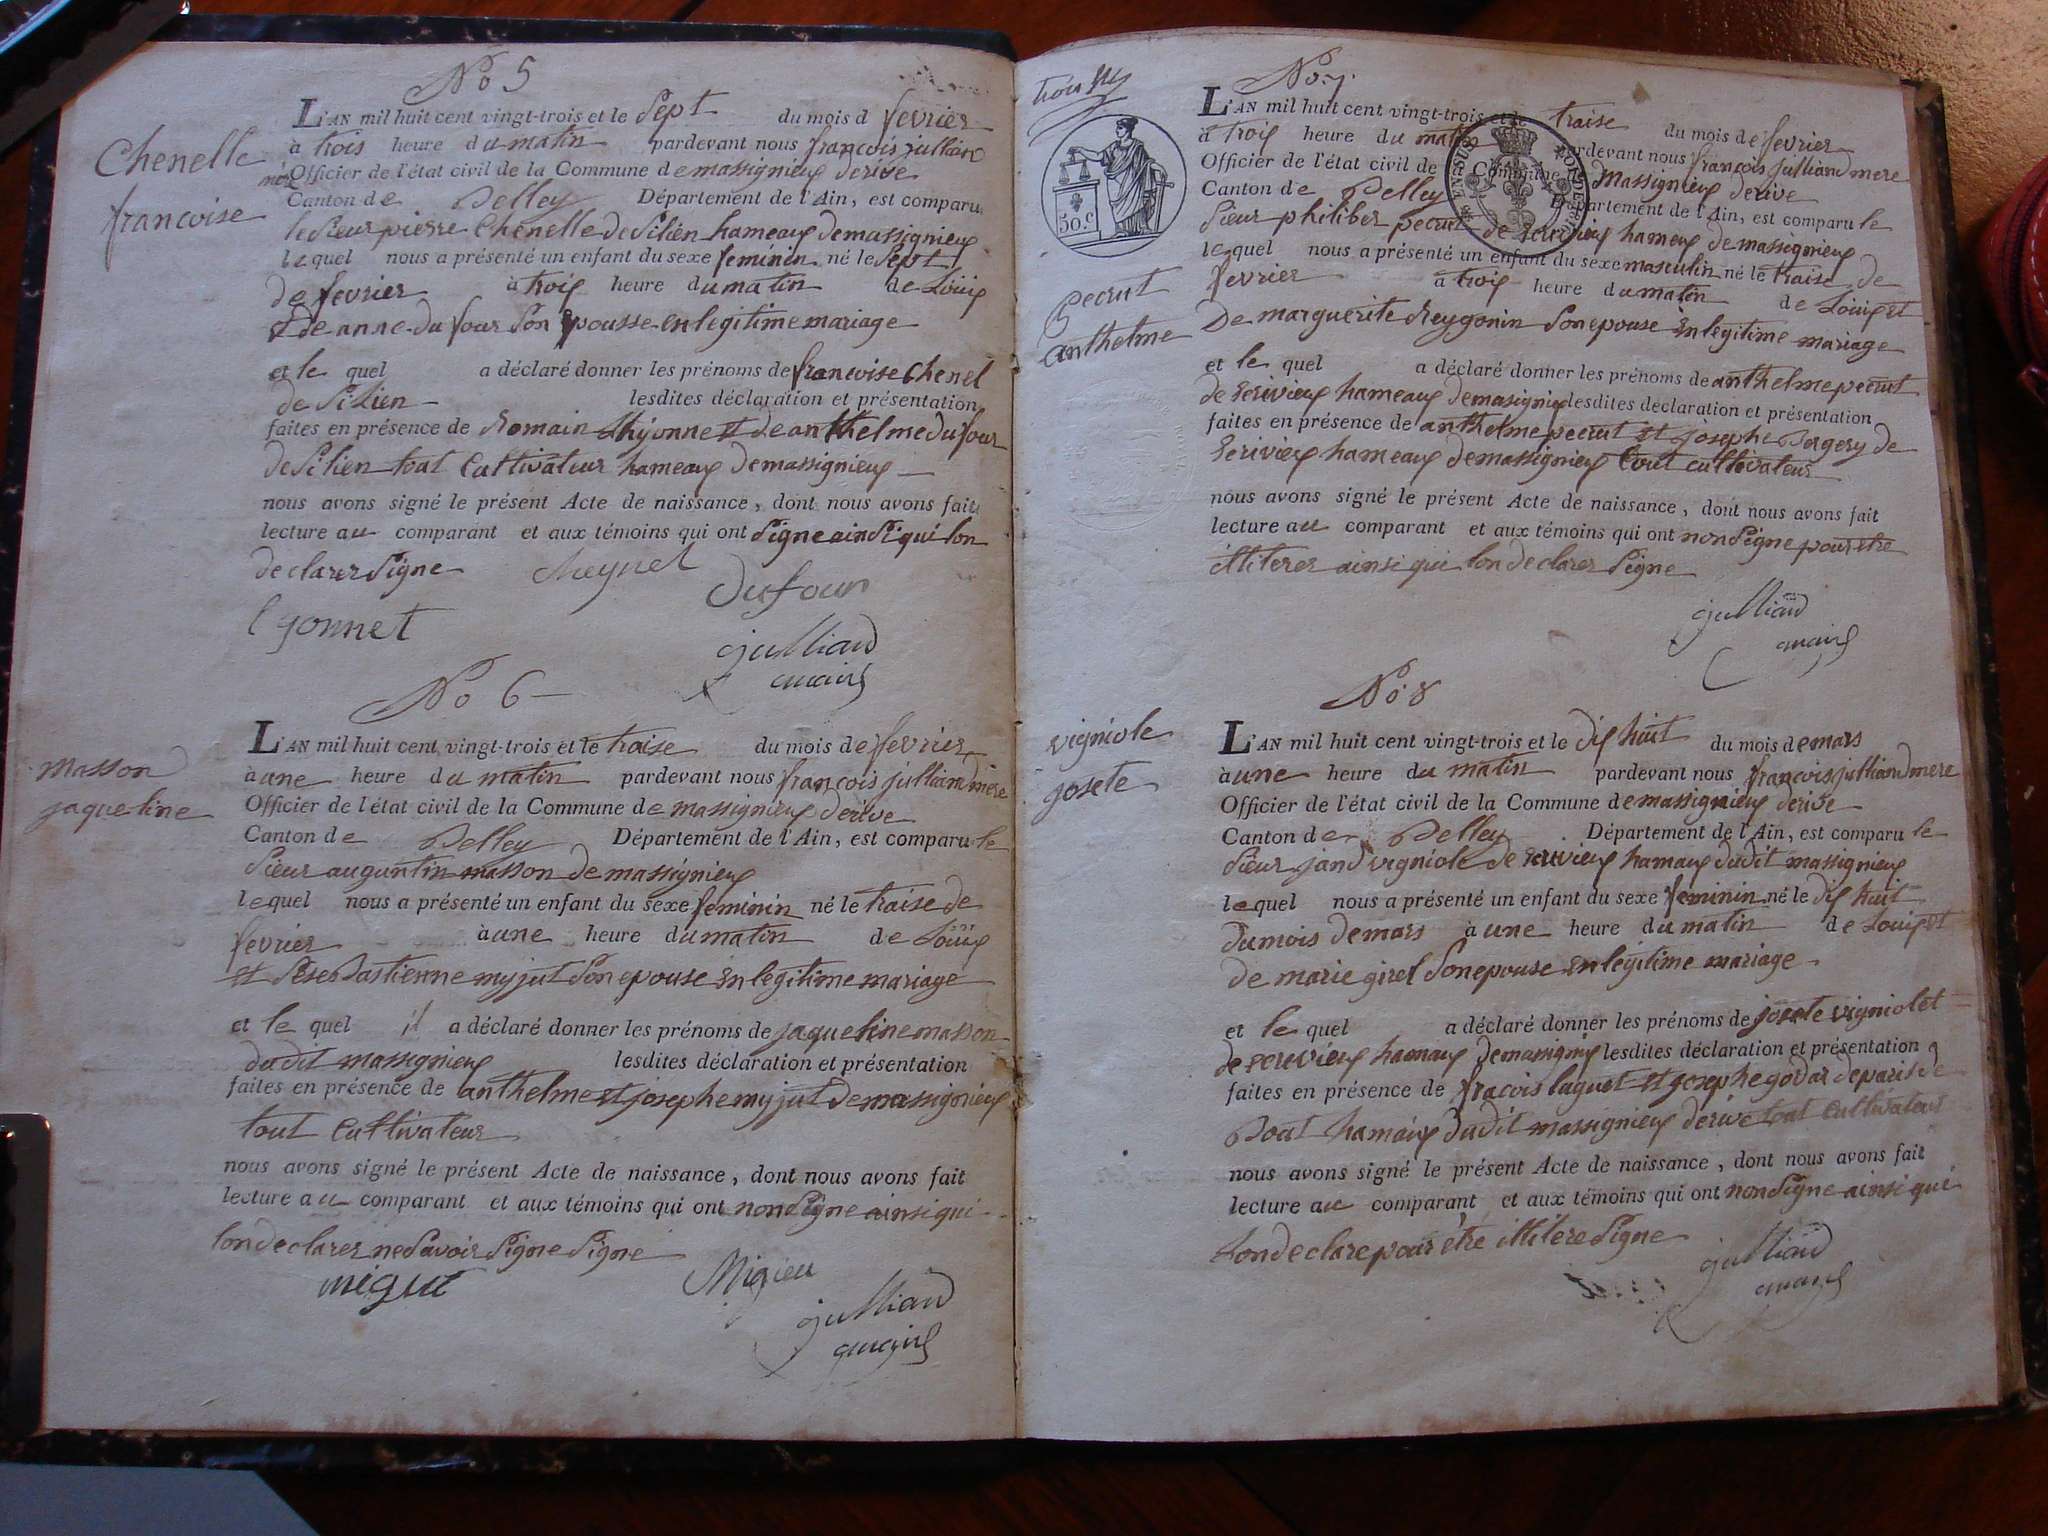 No 5
L'AN mil huit cent vingt-trois et le Sept du mois d fevrier
à trois heure du matin pardevant nous francois julliand
Officier de l'état civil de la Commune de massignieux derive
Canton de Belley Département de l'Ain, est comparu
le Sieur pierre Chenelle de Silien hameaux de massignieux
lequel nous a présenté un enfant du sexe feminin né le Sept
de fevrier à trois heure du matin de Louis
et de anne du four Son epousse en legitime mariage
et le quel a déclaré donner les prénoms de francoise Chenel
de Silien lesdites déclaration et présentation
faites en présence de Romain et de anthelme du four
de Silien tout Cultivateur hameaux de massignieux
nous avons signé le présent Acte de naissance, dont nous avons fait
lecture au comparant et aux témoins qui ont Signe ainsi qui lon
declarer Signe
Chenelle
francoise
cheynel
Dufour
gonnet
julliand
maire
No 6
L'AN mil huit cent vingt-trois et le traise du mois de fevrier
à une heure du matin pardevant nous francois julliand mere
Officier de l'état civil de la Commune de massignieux derive
Canton de Belley Département de l'Ain, est comparu le
Sieur auguntin masson de massignieux
lequel nous a présenté un enfant du sexe feminin né le traise de
fevrier à une heure du matin de Louis
et Sesebastienne myjut Son epouse en legitime mariage
et le quel il a déclaré donner les prénoms de jaqueline masson
dudit massignieux lesdites déclaration et présentation
faites en présence de anthelme et josephe myjut de massignieux
tout Cultivateur
nous avons signé le présent Acte de naissance, dont nous avons fait
lecture au comparant et aux témoins qui ont non Signe ainsi qui
lon declarer ne Savoir Signe Signe
masson
jaqueline
migut
Migieu
julliand
maire
No 7
L'AN mil huit cent vingt-trois et le traise du mois de fevrier
à trois heure du matin pardevant nous francois julliand mere
Officier de l'état civil de Commune Massignieux derive
Canton de Belley Département de l'Ain, est comparu le
Sieur philiber pecrut de hameux de massignieux
lequel nous a présenté un enfant du sexe masculin né le traise de
fevrier à trois heure du matin de Louis et
De marguerite Reygonin Son epouse en legitime mariage
et le quel a déclaré donner les prénoms de anthelme pecrut
de Serivieux hameaux de masignieux lesdites déclaration et présentation
faites en présence de anthelme pecrut et josephe Bergery de
Serivieux hameaux de massignieux tout cultivateur
nous avons signé le présent Acte de naissance, dont nous avons fait
lecture au comparant et aux témoins qui ont non Signe pour etre
illiterer ainsi qui lon declarer Signe
50.c
pecrut
anthelme
julliand
maire
No 8
L'AN mil huit cent vingt-trois et le dix huit du mois de mars
à une heure du matin pardevant nous francois julliand mere
Officier de l'état civil de la Commune de massignieux derive
Canton de Belley Département de l'Ain, est comparu le
Sieur jand vigniole de hamaux dudit massignieux
lequel nous a présenté un enfant du sexe feminin né le dix huit
du mois de mars à une heure du matin de Louis et
de marie girel Son epouse en legitime mariage
et le quel a déclaré donner les prénoms de josete vigniolet
de hamaux de masignieux lesdites déclaration et présentation
faites en présence de fracois laguet et josephe godar de paris de
Bout hameaux dudit massignieux derive tout Cultivateur
nous avons signé le présent Acte de naissance, dont nous avons fait
lecture au comparant et aux témoins qui ont non Signe ainsi qui
Lon declare pour être illitère Signe
vigniole
josete
julliand
maire